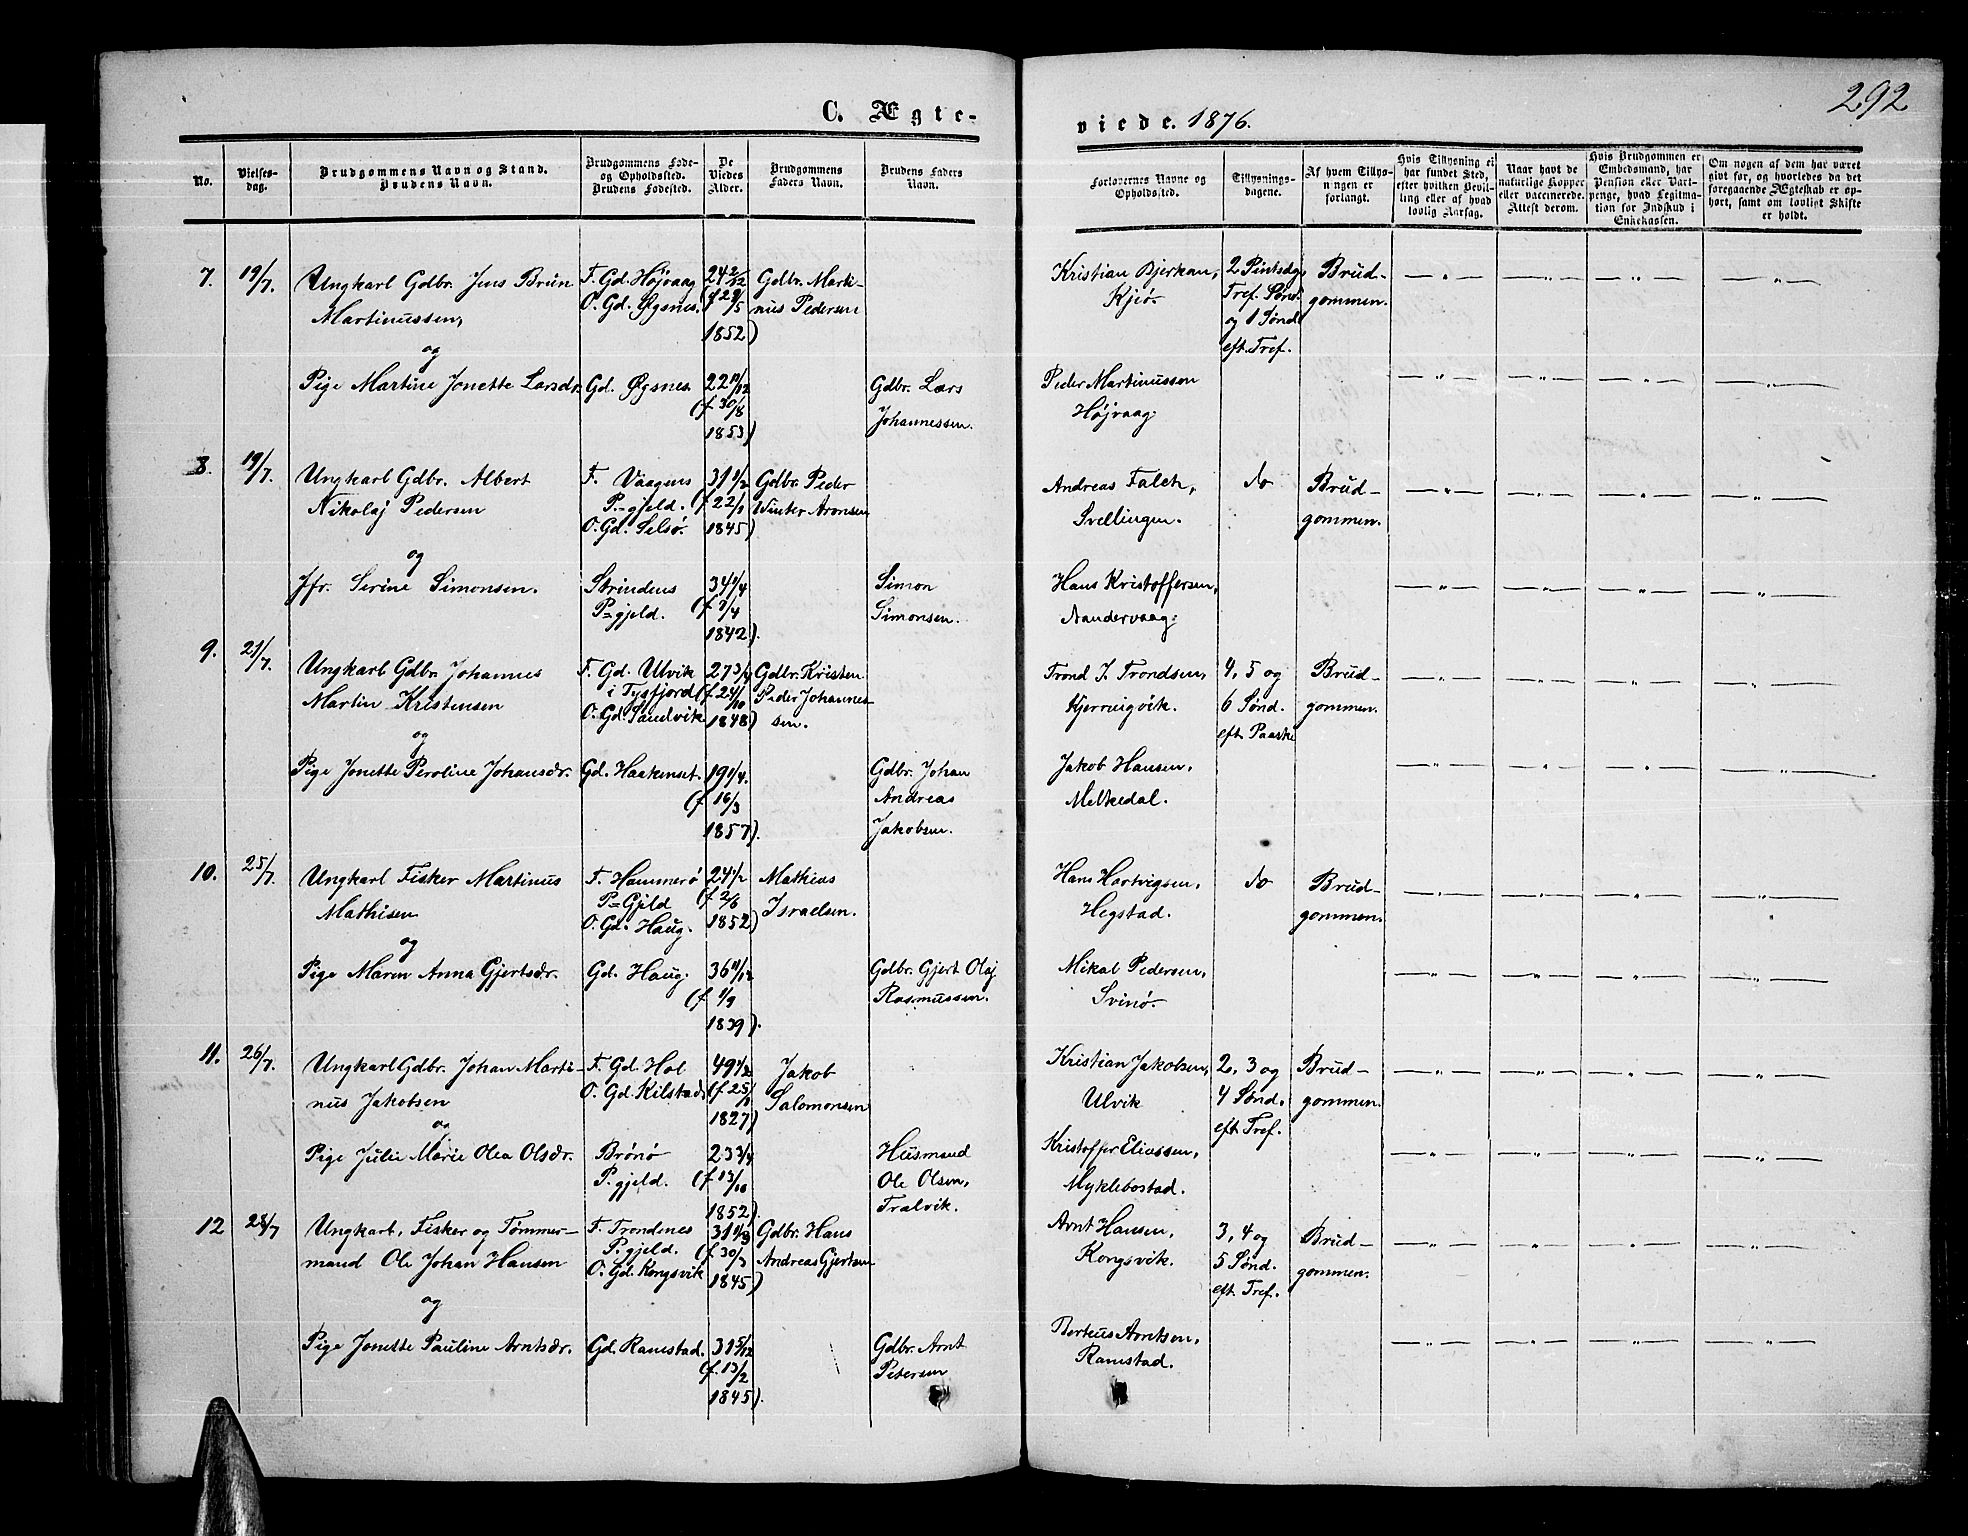 292
C. Ægte-
viede. 1876.
No.
Vielses-
dag.
Brudgommens Navn og Stand.
Brudens Navn.
Brudgommens Føde-
og Opholdssted.
Brudens Fødested.
De
Viedes
Alder.
Brudgommens
Faders Navn.
Brudens Faders
Navn.
Forlovernes Navne og
Opholdssted.
Tillysnings-
dagene.
Af hvem Tillys-
ningen er
forlangt.
Hvis Tillysning ei
har fundet Sted,
efter hvilken Bevil-
ling eller af hvad
lovlig Aarsag.
Naar havt de
naturlige Kopper
eller vaccinerede.
Attest derom.
Hvis Brudgommen er
Embedsmand, har
Pension eller Vart-
penge, hvad Legitima-
tion for Indskud i
Enkekassen.
Om nogen af dem har været
gift før, og hvorledes da det
foregaaende Ægteskab er op-
hørt, samt om lovligt Skifte
er holdt.
7.
19/7.
Ungkarl Gdbr. Jens Brun
Martinussen,
og
Pige Martine Jonette Larsdr.
F. Gd. Højvaag
O. Gd. Øgsnes.
Gd. Øgsnes
24 2/12
(f 29/5
1852)
22 11/12
(f. 30/8
1853)
Gdbr. Marti-
nus Pedersen
Gdbr. Lars
Johannessen.
Kristian Bjerkan,
Kjeø.
Peder Martinussen
Højvaag.
2 Pintsdg,
Tref. Sønd.
og 1 Sønd.
eft. Tref.
Brud-
gommen.
8.
19/7.
Ungkarl Gdbr. Albert
Nikolaj Pedersen
og
Jfr. Serine Simonsen.
F. Vaagens
P.-gjeld.
O. Gd. Selsø.
Strindens
P=gjeld.
31 1/2
(f 22/1
1845)
34 1/4
(f 7/4
1842).
Gdbr. Peder
Winter Aronsen
Simon
Simonsen.
Andreas Falch,
Svellingen.
Hans Kristoffersen,
Sandervaag.
do
Brud-
gommen.
9.
21/7.
Ungkarl Gdbr. Johannes
Martin Kristensen
og
Pige Jonette Peroline Johansdr.
F. Gd. Ulvik
i Tysfjord
O. Gd. Sandvik
Gd. Haakenset.
27 3/4
(f. 24/10
1848)
19 1/4.
(f. 16/3
1857).
Gdbr. Kristen
Peder Johannes-
sen.
Gdbr. Johan
Andreas
Jakobsen.
Trond J. Trondsen,
Kjerringvik.
Jakob Hansen,
Melkedal.
4, 5 og
6 Sønd.
eft. Paaske
Brud-
gommen.
10.
25/7.
Ungkarl Fisker Martinus
Mathisen
og
Pige Maren Anna Gjertsdr.
F. Hammerø
P=Gjeld
O. Gd. Haug.
Gd. Haug.
24 1/2
(f 2/6
1852)
36 11/12
(f 1/9
1839).
Mathias
Israelsen.
Gdbr. Gjert Olaj
Rasmussen.
Hans Hartvigsen,
Hegstad.
Mikal Pedersen,
Svinø.
do
Brud-
gommen.
11.
26/7.
Ungkarl Gdbr. Johan Marti-
nus Jakobsen
og
Pige Julie Marie Olea Olsdr.
F. Gd. Hol
O. Gd. Kilstad
Brønø
P. gjeld.
49 1/2
(f. 25/1
1827)
23 3/4
(f 13/10
1852).
Jakob
Salomonsen
Husmand
Ole Olsen,
Tralvik.
Kristian Jakobsen,
Ulvik
Kristoffer Eliassen,
Myklebostad.
2, 3 og
4 Sønd.
eft. Tref.
Brud-
gommen.
12
28/7
Ungkarl, Fisker og Tømmer-
mand Ole Johan Hansen
og
Pige Jonette Pauline Arntsdr.
F. Trondenes
P. gjeld.
O. Gd. Kongsvik
Gd. Ramstad.
31 1/3
(f. 30/3
1845)
31 5/12
(f. 13/2
1845).
Gdbr. Hans
Andreas Gjertsen
Gdbr. Arnt
Petersen
Arnt Hansen,
Kongsvik.
Berteus Arntsen,
Ramstad.
3, 4 og
5 Sønd.
eft. Tref.
Brud-
gommen.